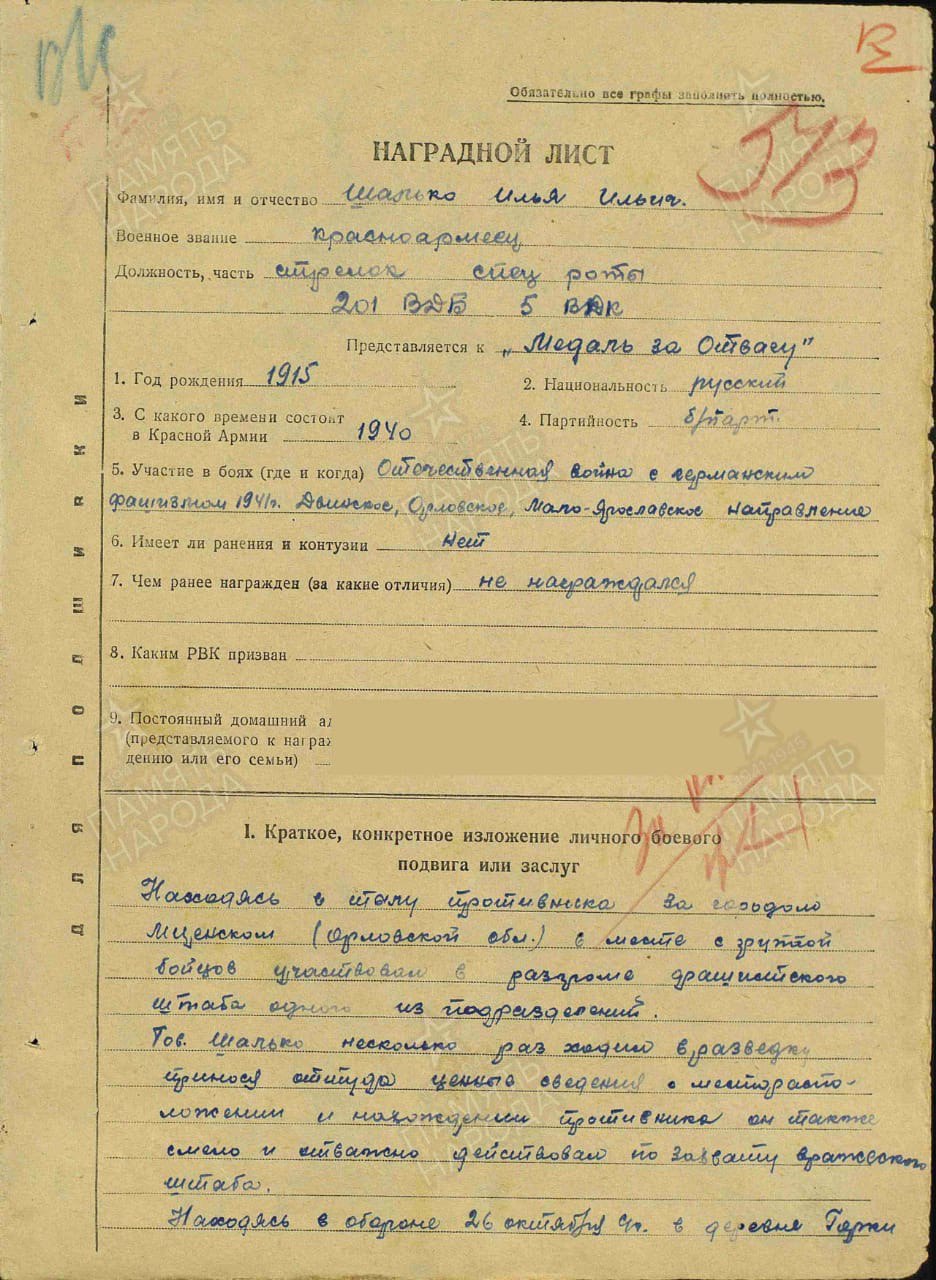 Обязательно все графы заполнять полностью.
513
НАГРАДНОЙ ЛИСТ
Фамилия, имя и отчество Шалько Илья Ильич.
Военное звание красноармеец
Должность, часть стрелок спец роты
201 ВДБ 5 ВДК
Представляется к „Медаль за Отвагу"
1. Год рождения 1915
2. Национальность русский
3. С какого времени состоит
в Красной Армии 1940
4. Партийность б/парт.
5. Участие в боях (где и когда) Отечественная война с германским
фашизмом 1941г. Двинское, Орловское, Мало-Ярославское направление
6. Имеет ли ранения и контузии нет
7. Чем ранее награжден (за какие отличия) не награждался
8. Каким РВК призван
9. Постоянный домашний
(представляемого к награж
дению или его семьи)
ДЛЯ ПОДШИВКИ
I. Краткое, конкретное изложение личного боевого
подвига или заслуг
Находясь в тылу противника за городом
Мценском (Орловской обл.) в месте с группой
бойцов участвовал в разгроме фашистского
штаба одного из подразделений.
Тов. Шалько несколько раз ходил в разведку
принося оттуда ценные сведения о месторасто-
ложении и нахождении противника он также
смело и отважно действовал по захвату вражеского
штаба.
Находясь в обороне 26 октября 41г. в деревне
ПАМЯТЬ НАРОДА